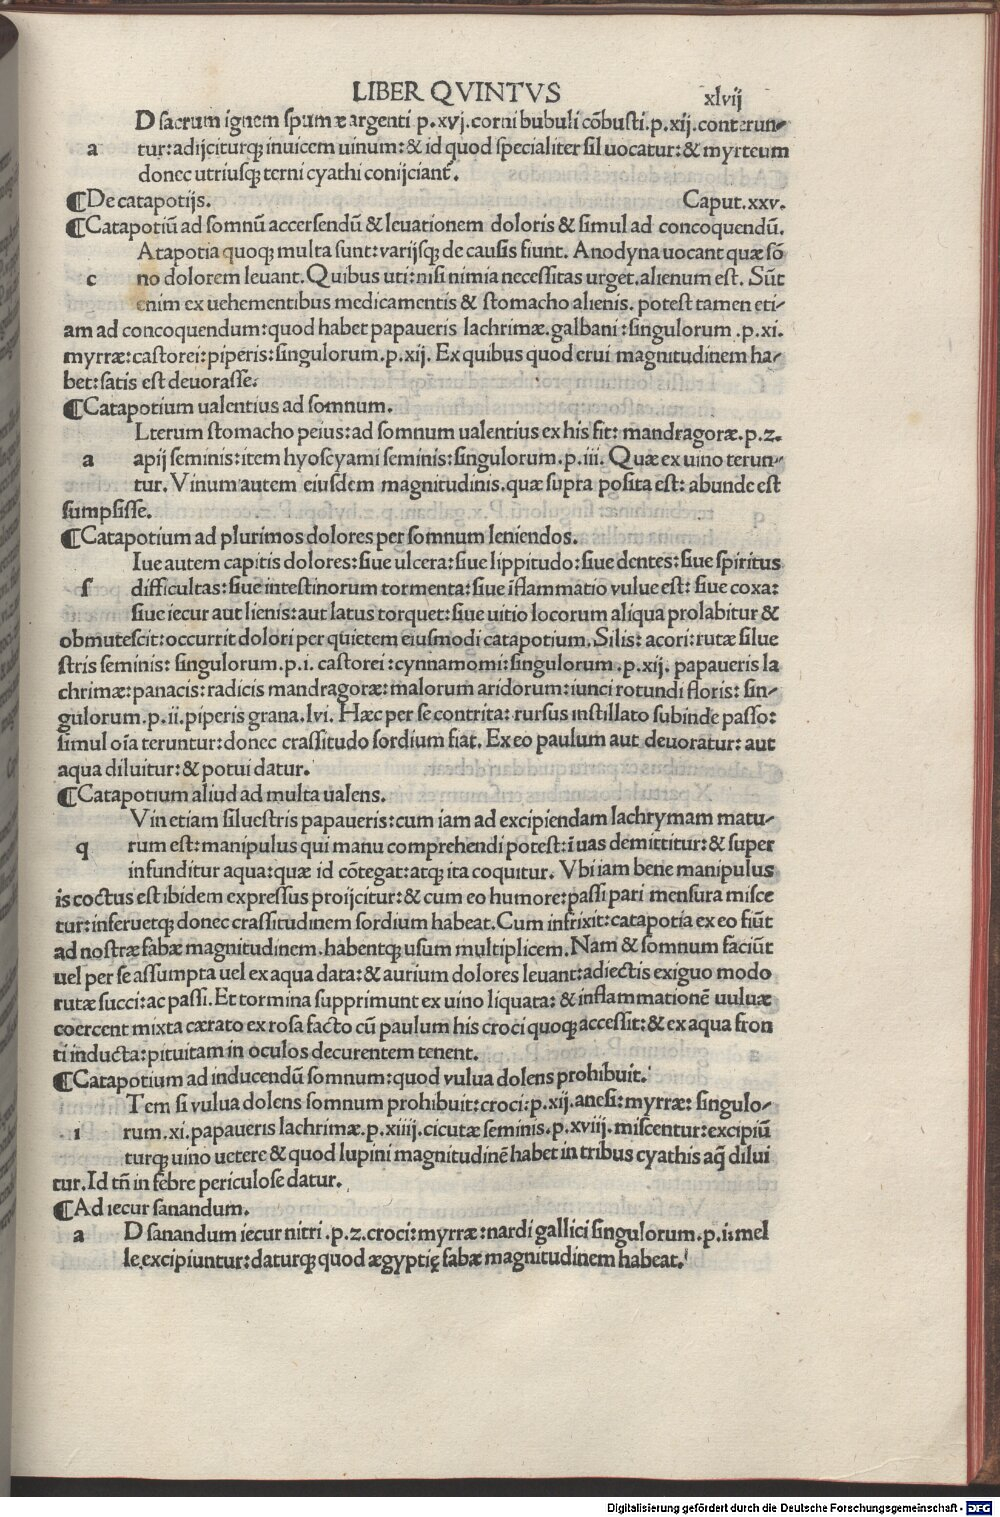 LIBER QVINTVS xlvij
D sacrum ignem spumæ argenti p.xvj.corni bubuli cōbusti.p.xij.conterun-
a tur:adijciturq; inuicem uinum:& id quod specialiter sil uocatur:& myrteum
donec utriusq; terni cyathi conijciant̄.
¶De catapotijs. Caput.xxv.
¶Catapotiū ad somnū accersendū & leuationem doloris & simul ad concoquendū.
Atapotia quoq; multa sunt:varijsq; de causis fiunt. Anodyna uocant quæ sō
c no dolorem leuant.Quibus uti:nisi nimia necessitas urget.alienum est. Sūt
enim ex uehementibus medicamentis & stomacho alienis. potest tamen eti-
am ad concoquendum:quod habet papaueris lachrimæ.galbani:singulorum .p.xi.
myrræ:castorei:piperis:singulorum.p.xij. Ex quibus quod erui magnitudinem ha-
bet:satis est deuorasse.
¶Catapotium ualentius ad somnum.
Lterum stomacho peius:ad somnum ualentius ex his fit: mandragoræ.p.z.
a apij seminis:item hyoscyami seminis:singulorum.p.iii. Quæ ex uino terun-
tur. Vinum autem eiusdem magnitudinis.quæ supra posita est: abunde est
sumpsisse.
¶Catapotium ad plurimos dolores per somnum leniendos.
Iue autem capitis dolores:siue ulcera:siue lippitudo:siue dentes:siue spiritus
s difficultas:siue intestinorum tormenta:siue īflammatio vulue est: siue coxa:
siue iecur aut lienis:aut latus torquet:siue uitio locorum aliqua prolabitur &
obmutescit:occurrit dolori per quietem eiusmodi catapotium. Silis: acori:rutæ silue
stris seminis: singulorum.p.i. castorei:cynnamomi:singulorum .p.xij. papaueris la
chrimæ:panacis:radicis mandragoræ:malorum aridorum:iunci rotundi floris: sin-
gulorum.p.ii.piperis grana.lvi. Hæc per se contrita: rursus instillato subinde passo:
simul oīa teruntur:donec crassitudo sordium fiat. Ex eo paulum aut deuoratur: aut
aqua diluitur:& potui datur.
¶Catapotium aliud ad multa ualens.
Vin etiam siluestris papaueris:cum iam ad excipiendam lachrymam matu-
q rum est:manipulus qui manu comprehendi potest:ī uas demittitur:& super
infunditur aqua:quæ id cōtegat:atq; ita coquitur. Vbi iam bene manipulus
is coctus est ibidem expressus proijcitur:& cum eo humore:passi pari mensura misce
tur:inferuetq; donec crassitudinem sordium habeat.Cum infrixit:catapotia ex eo fiūt
ad nostræ fabæ magnitudinem.habentq; usum multiplicem.Nam & somnum faciūt
uel per se assumpta uel ex aqua data:& aurium dolores leuant:adiectis exiguo modo
rutæ succi:ac passi.Et tormina supprimunt ex uino liquata: & inflammationē uuluæ
coercent mixta cærato ex rosa facto cū paulum his croci quoq; accessit:& ex aqua fron
ti inducta:pituitam in oculos decurentem tenent.
¶Catapotium ad inducendū somnum:quod vulua dolens prohibuit.
Tem si vulua dolens somnum prohibuit:croci:p.xij.anesi:myrræ: singulo-
i rum.xi.papaueris lachrimæ.p.xiiij.cicutæ seminis.p.xviij.miscentur:excipiū
turq; uino uetere & quod lupini magnitudinē habet in tribus cyathis aq̄ dilui
tur.Id tn̄ in febre periculose datur.
¶Ad iecur sanandum.
a D sanandum iecur nitri .p.z.croci:myrræ:nardi gallici singulorum.p.i:mel
le.excipiuntur:daturq; quod ægyptię fabæ magnitudinem habeat.
Digitalisierung gefördert durch die Deutsche Forschungsgemeinschaft - DFG